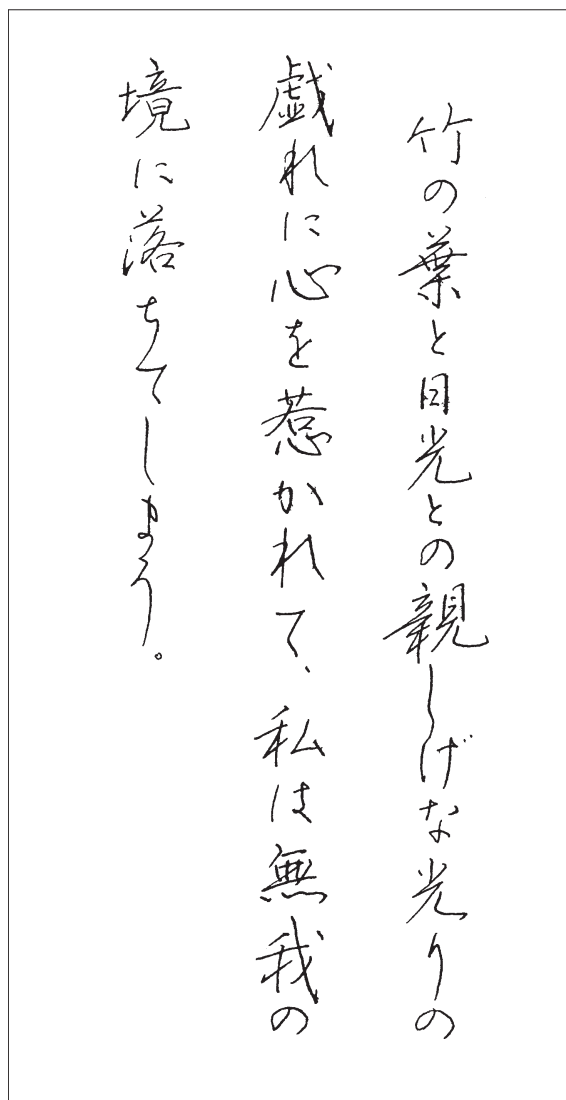 竹の葉と日光との親しげな光りの
戯れに心を惹かれて、私は無我の
境に落ちてしまう。